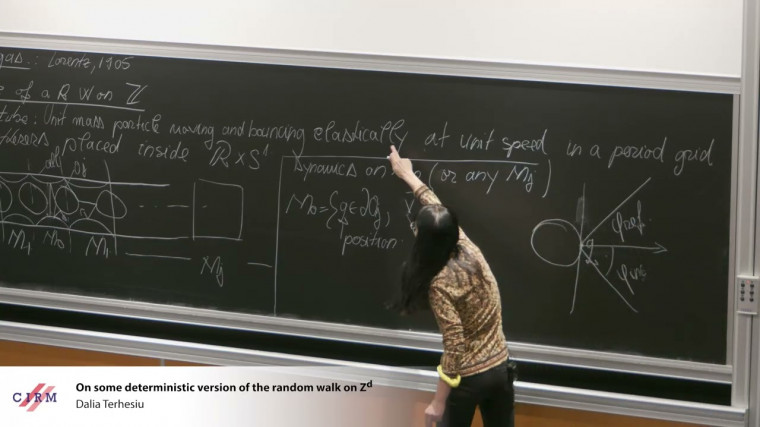 gas.: Lorentz, 1905
e of a R W on Z
tube: Unit mass particle moving and bouncing elastically at unit speed in a period grid
placed inside R × S¹
Dynamics on (or any Mj)
M0 = {q ∈ ∂Oj,
position
M1 M0 M1 Mj
CIRM
On some deterministic version of the random walk on Zd
Dalia Terhesiu